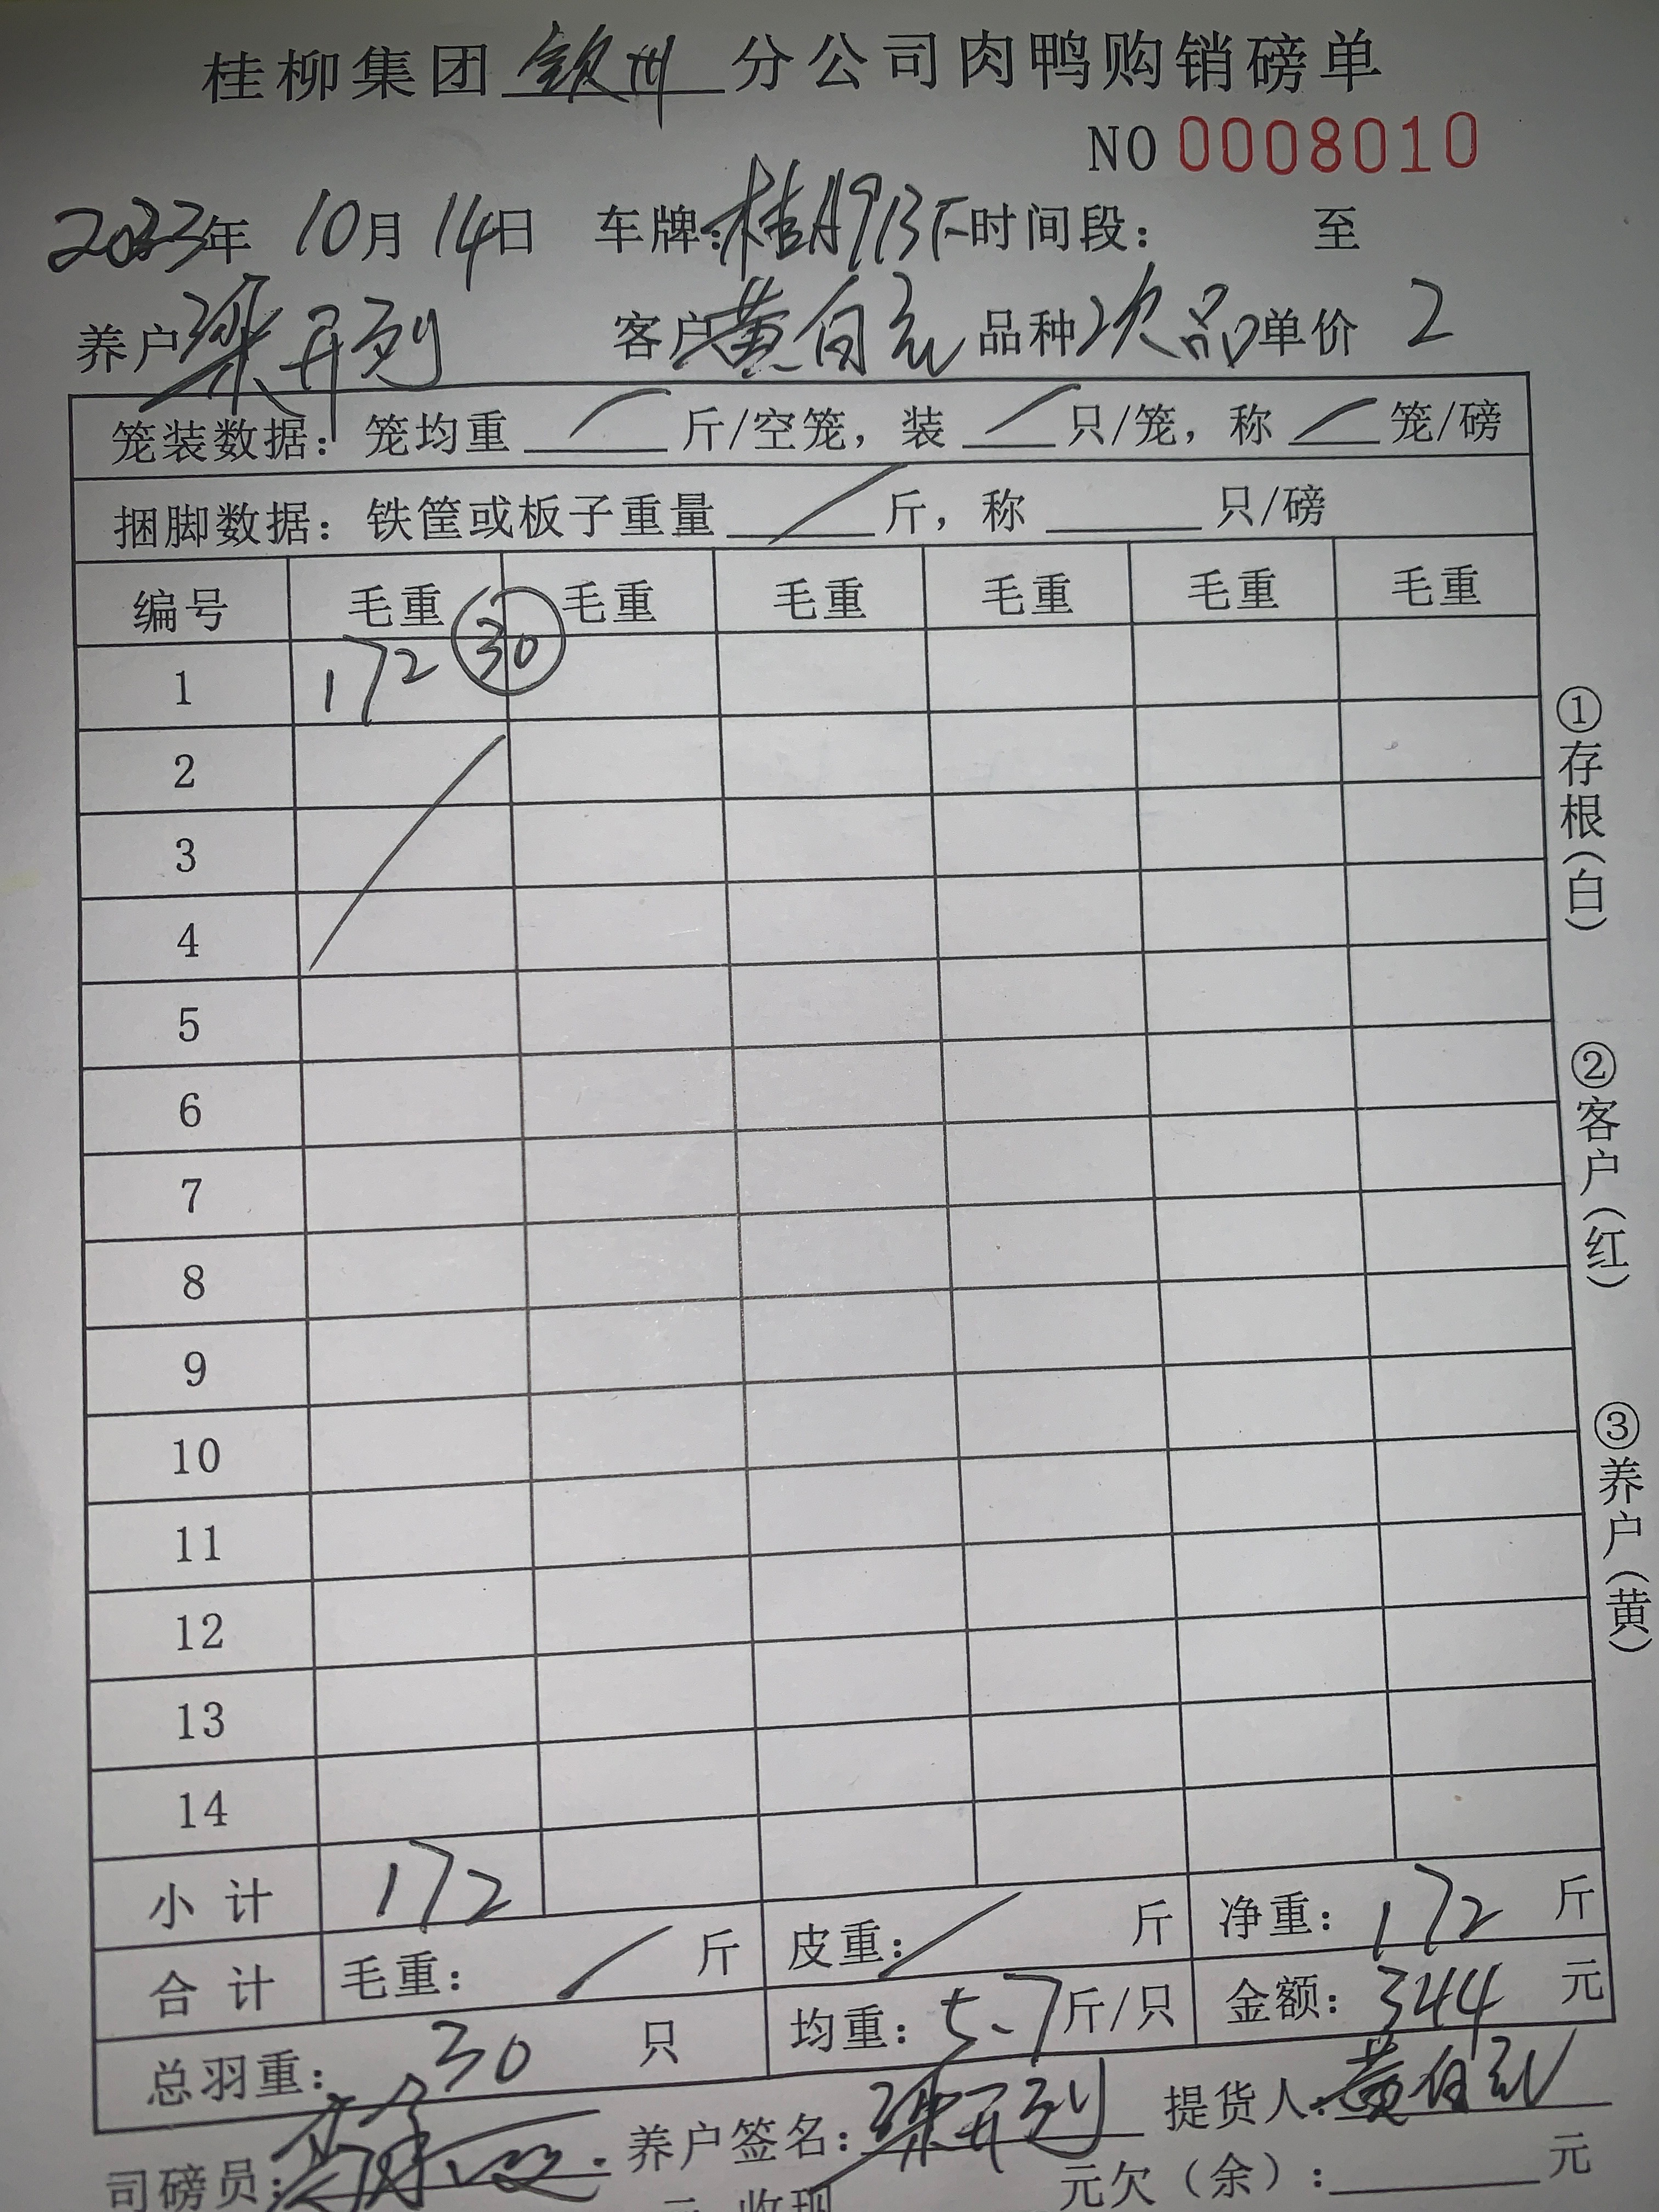 桂柳集团 钦州 分公司肉鸭购销磅单
NO 0008010
2023年 10月 14日 车牌:桂A913 时间段: 至
养户 梁开列 客户 黄自 品种 次品 单价 2
笼装数据: 笼均重 / 斤/空笼, 装 / 只/笼, 称 / 笼/磅
捆脚数据: 铁筐或板子重量 / 斤, 称 只/磅
编号 毛重 毛重 毛重 毛重 毛重 毛重
1 172 30
2
3
4
5
6
7
8
9
10
11
12
13
14
小计 172
合计 毛重: / 斤 皮重: / 斤 净重: 172 斤
总羽重: 30 只 均重: 5.7 斤/只 金额: 344 元
司磅员: 养户签名: 梁开列 提货人: 黄自
元 收现 元欠(余): 元
①存根(白)
②客户(红)
③养户(黄)